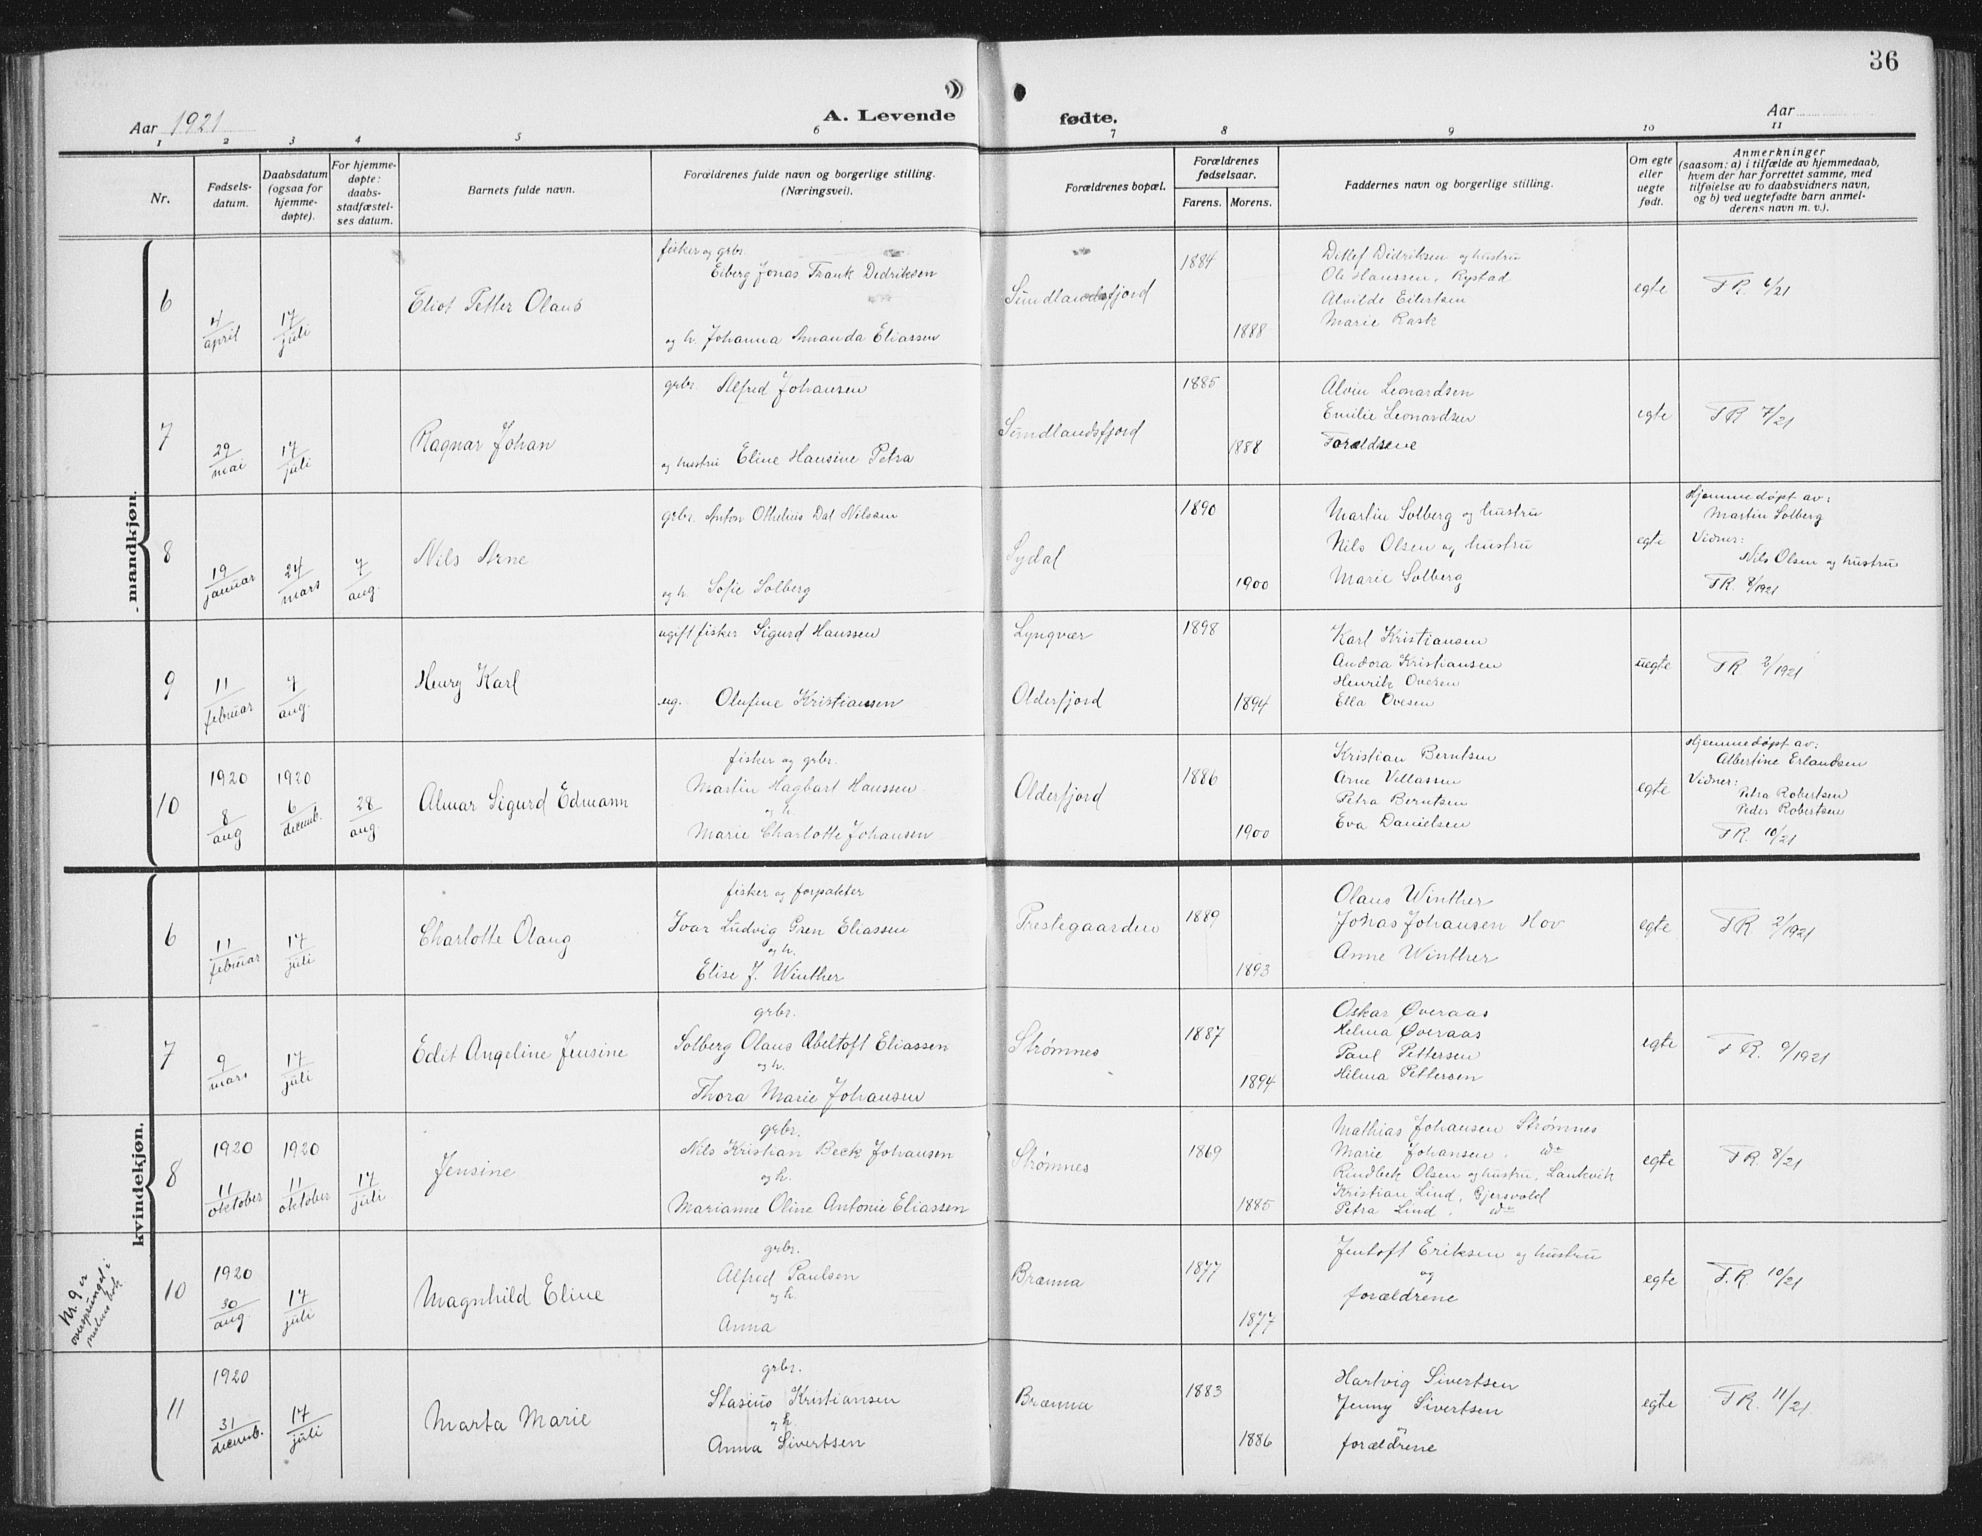 36
Aar 1921
A. Levende fødte.
Aar
1 2 3 4 5 6 7 8 9 10 11
Nr.
Fødsels-
datum.
Daabsdatum
(ogsaa for
hjemme-
døpte).
For hjemme-
døpte:
daabs-
stadfæstel-
ses datum.
Barnets fulde navn.
Forældrenes fulde navn og borgerlige stilling.
(Næringsvei).
Forældrenes bopæl.
Forældrenes
fødselsaar.
Farens. Morens.
Faddernes navn og borgerlige stilling.
Om egte
eller
uegte
født.
Anmerkninger
(saasom: a) i tilfælde av hjemmedaab,
hvem der har forrettet samme, med
tilføielse av to daabsvidners navn,
og b) ved uegtefødte barn anmel-
derens navn m. v.).
mandkjøn.
6
4/april
17/juli
Eliot Petter Olaus
fisker og grbr.
Eiberg Jonas Frank Dedriksen
og h. Johanna Amanda Eliassen
Sundlandsfjord
1884
1888
Detlef Didriksen og hustru
Ole Hanssen, Rystad
Alvilde Eilertsen
Marie Rask
egte
F.R. 6/21
7
29/mai
17/juli
Ragnar Johan
grbr. Alfred Johansen
og hustru Eline Hansine Petra
Sundlandsfjord
1885
1888
Alvin Leonardsen
Emilie Leonardsen
Forældrene
egte
F.R. 7/21
8
19/januar
24/mars
7/aug.
Nils Arne
grbr. Anton Othelius Dal Nilsen
og h. Sofie Solberg
Sydal
1890
1900
Martin Solberg og hustru
Nils Olsen og hustru
Marie Solberg
egte
Hjemmedøpt av:
Martin Solberg
Vidner:
Nils Olsen og hustru
F.R. 8/1921
9
11/februar
7/aug.
Henry Karl
ugift fisker Sigurd Hanssen
ug. Olufine Kristiansen
Lyngvær
Olderfjord
1898
1894
Karl Kristiansen
Andora Kristiansen
Henrik Ovesen
Ella Ovesen
uegte
F.R. 2/1921
10
1920
8/aug
1920
6/decemb.
28/aug.
Almar Sigurd Edmann
fisker og grbr.
Martin Hagbart Hanssen
og h.
Marie Charlotte Johansen
Olderfjord
1886
1900
Kristian Berntsen
Arne Villassen
Petra Berntsen
Eva Danielsen
egte
Hjemmedøpt av:
Albertine Erlandsen
Vidner:
Petra Robertsen
Peder Robertsen
F.R. 10/21
kvindekjøn.
6
11/februar
17/juli
Charlotte Olaug
fisker og forpakter
Ivar Ludvig Gren Eliassen
og h.
Elise J. Winther
Prestegaarden
1889
1893
Olaus Winther
Jonas Johansen Hov
Anne Winther
egte
F.R. 2/1921
7
9/mars
17/juli
Edit Angeline Jensine
grbr.
Solberg Olaus Abeltoft Eliassen
og h.
Thora Marie Johansen
Strømnes
1887
1894
Oskar Øveraas
Helma Øveraas
Paul Pettersen
Hilma Pettersen
egte
F.R. 9/1921
8
1920
11/oktober
1920
11/oktober
17/juli
Jensine
grbr.
Nils Kristian Beck Johansen
og h.
Marianne Oline Antonie Eliassen
Strømnes
1869
1885
Mathias Johansen Strømnes
Marie Johansen, do
Rindbek Olsen og hustru, Laukvik
Kristian Lind, Gjersvold
Petra Lind, do
egte
F.R. 8/21
Nr. 9 er
oversprunget i
10
1920
30/aug.
17/juli
Magnhild Eline
grbr.
Alfred Paulsen
og h.
Anna
Brenna
1877
1877
Jentoft Eriksen og hustru
og
forældrene
egte
F.R. 10/21
11
1920
31/decemb.
17/juli
Marta Marie
grbr.
Stasius Kristiansen
og h.
Anna Sivertsen
Brenna
1883
1886
Hartvig Sivertsen
Jenny Sivertsen
forældrene
egte
F.R. 11/21